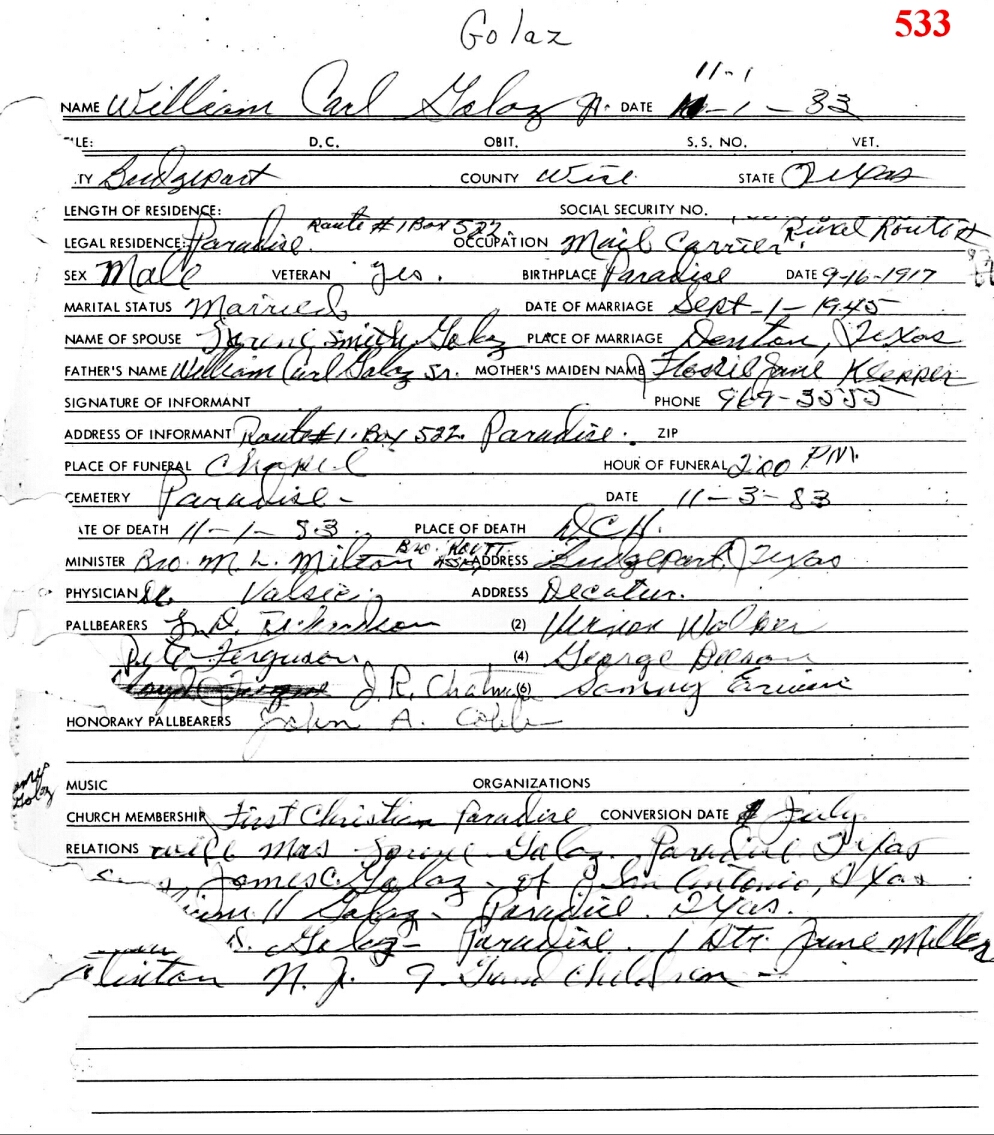 Golaz
533
11-1
NAME William Carl Golaz Jr. DATE 11-1-83
LE: D.C. OBIT. S.S. NO. VET.
TY Bridgeport COUNTY Wise STATE Texas
LENGTH OF RESIDENCE: SOCIAL SECURITY NO.
LEGAL RESIDENCE: Paradise. Route #1 Box 522 OCCUPATION Mail Carrier Rural Route
SEX Male VETERAN yes. BIRTHPLACE Paradise DATE 9-16-1917
MARITAL STATUS Married DATE OF MARRIAGE Sept-1-1945
NAME OF SPOUSE Smith Golaz PLACE OF MARRIAGE Denton, Texas
FATHER'S NAME William Carl Golaz Sr. MOTHER'S MAIDEN NAME Flossie Jane Klepper
SIGNATURE OF INFORMANT PHONE 969-
ADDRESS OF INFORMANT Route #1. Box 522 Paradise. ZIP
PLACE OF FUNERAL Chapel HOUR OF FUNERAL 2:00 PM.
CEMETERY Paradise- DATE 11-3-83
ATE OF DEATH 11-1-83. PLACE OF DEATH D.C.H.
MINISTER Bro. M. L. Milton Bro. ADDRESS Bridgeport, Texas
PHYSICIAN Dr. ADDRESS Decatur.
PALLBEARERS (2) Vernon Walker
Ferguson (4) George
J.R. (6) Sammy
HONORARY PALLBEARERS John A. Cobb
Golaz
MUSIC ORGANIZATIONS
CHURCH MEMBERSHIP First Christian Paradise CONVERSION DATE July
RELATIONS wife Mrs Golaz. Paradise Texas
James C. Golaz - of San Antonio, Texas
H Golaz - Paradise. Texas.
Golaz - Paradise. 1 Dtr. June Miller
N. J. Grand Children -